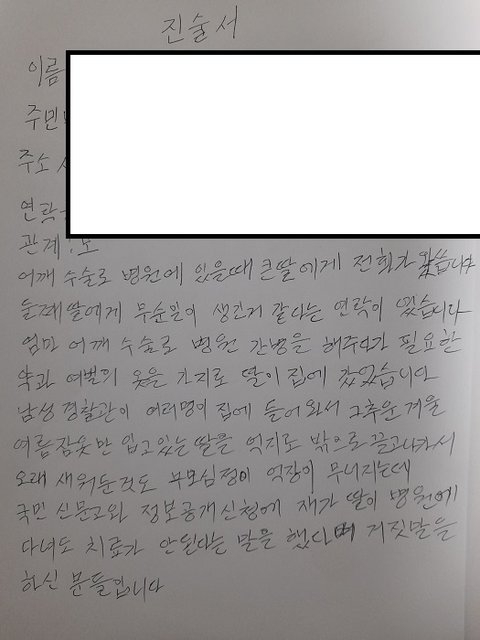 진술서
이름
주민
주소
연락
관계 : 모
어깨 수술로 병원에 있을때 큰딸에게 전화가 왔습니다
둘째딸에게 무순일이 생긴거 같다는 연락이 였습니다
엄마 어깨 수술로 병원 간병을 해주다가 필요한
약과 여벌의 옷을 가지로 딸이 집에 갔었습니다
남성 경찰관이 여러명이 집에 들어와서 그추운 겨울
여름잠옷만 입고있는 딸을 억지로 밖으로 끌고나가서
오래 세워둔것도 부모심정이 억장이 무너지는데
국민 신문고와 정보공개신청에 재가 딸이 병원에
다녀도 치료가 안된다는 말을 했다며 거짓말을
하신 분들입니다